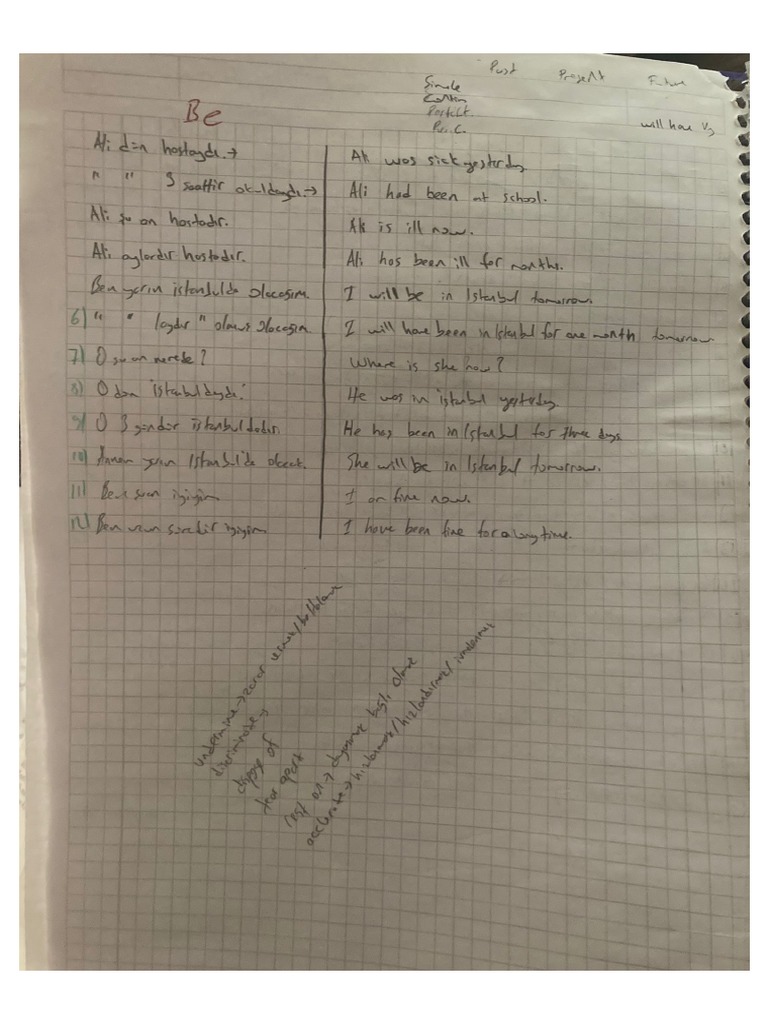 Past Present Future
Simple
Contin
Perfect
Per. C.
will have V3
Be
Ali dün hastaydı → Ali was sick yesterday
" " 3 saattir okuldaydı → Ali had been at school.
Ali şu an hastadır. Ali is ill now.
Ali aylardır hastadır. Ali has been ill for months.
Ben yarın istanbulda olacağım. I will be in Istanbul tomorrow.
6) " " 1 aydır " olmuş olacağım. I will have been in Istanbul for one month tomorrow
7) O şu an nerede? Where is she now?
8) O dün istanbuldaydı. He was in istanbul yesterday
9) O 3 gündür istanbuldadır. He has been in Istanbul for three days
10) Annem yarın Istanbul'da olacak. She will be in Istanbul tomorrow.
11) Ben şuan iyiyim I am fine now.
12) Ben uzun süredir iyiyim I have been fine for a long time.
undermine → zarar vermek/baltalamak
discriminate →
dispose of
tear apart
rest on → dayanmak, bağlı olmak
accelerate → hızlanmak/hızlandırmak/ivmelenmek